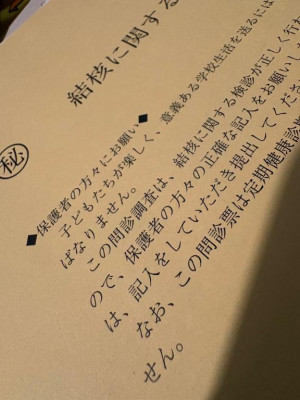 結核に関する
㊙
◆保護者の方々にお願い◆
子どもたちが楽しく、意義ある学校生活を送るには
ばなりません。
この問診調査は、結核に関する検診が正しく行わ
ので、保護者の方々の正確な記入をお願いし
は、記入をしていただき提出してくださ
なお、この問診票は定期健康診断
せん。